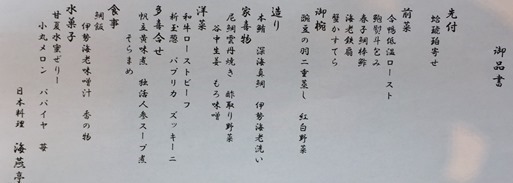 御品書
先付
蛤琥珀寄せ
前菜
合鴨低温ロースト
鮑熨斗包み
春子鯛棒鮓
海老鉄扇
蟹かすてら
御椀
豌豆の羽二重蒸し 紅白野菜
造り
本鮪 深海真鯛 伊勢海老洗い
家喜物
尼鯛雲丹焼き 酢取り野菜
谷中生姜 もろ味噌
洋菜
和牛ローストビーフ
新玉葱 パプリカ ズッキーニ
多喜合せ
帆立黄味煮 独活人参スープ煮
そらまめ
食事
鯛飯 伊勢海老味噌汁 香の物
水菓子
甘夏水蜜ぜりー
小丸メロン パパイヤ 苺
日本料理 海燕亭